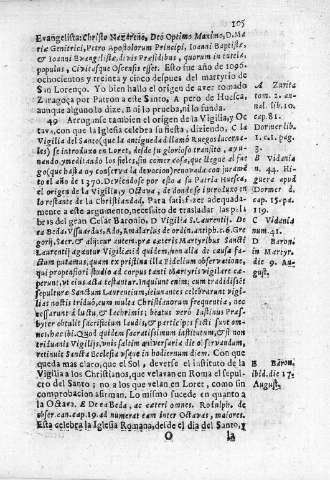 105
Evangelista: Christo Nazareno, Deo Optimo Maximo, D. Ma
ria Genitrici, Petro Apostolorum Principi, Ioanni Baptista,
& Ioanni Evangelista, divis Præsidibus, quorum in tutela,
populus, Civitasque Oscensis esset. Esto fue año de 1096.
ochocientos y treinta y cinco despues del martyrio de
San Lorenço. Yo bien hallo el origen de aver tomado
Zaragoça por Patron a este Santo. A pero de Huesca,
aunque alguno lo dize, B ni lo prueba, ni lo funda.
49 Atroganse tambien el origen de la Vigilia, y Oc
tava, con que la Iglesia celebra su fiesta, diziendo, C la
Vigilia del Santo (que la antiguedad llamò
se introduxo en Loret, desde su glorioso transito, ayu-
nando, y meditando los fieles, sin comer cosa, que llegue al fue
go (que hasta oy conserva la devocion) renovada con juramẽ
to el año de 1370. Deviendose por esto a la Patria Huesca,
el origen de la Vigilia, y Octava, de donde se introduxo en
lo restante de la Christiandad. Para satisfazer adequada-
mente a este argumento, necesito de trasladar las pala
bras del gran Cesar Baronio. D Vigilia S. Laurentij. De
ea Beda. Vsuardus, Ado, Amalarius de ordin. antiph. c. 6. Gre
gorij, Sacr. & alij: cur autem præ cæteris Martyribus Sancti
Laurentij agantur Vigiliæ: id quidem, non alia de causa fa-
ctum putamus, quam ex pristina illa Fidelium observatione,
qui propensiori studio ad corpus tanti Martyris vigilare cæ-
perunt, vt eius acta testantur. Inquiunt enim: cum tradidisset
sepultura Sanctum Laurencium, ieiunantes celebrarunt vigi-
lias noctis triduò, cum multa Christianorum frequentia, nec
cessarunt à luctu, & lachrimis: beatus verò Iustinus Pres-
byter obtulit sacrificium laudis, & participes facti sunt om-
nes: hæc ibi. Quod quidem sacratissimum institutum, & si non
triduanis Vigilijs, vnis saltim aniversaria die observandum,
retinuit Sancta Ecclesia vsque in hodiernum diem. Con que
queda mas claro, que el Sol, deverse el instituto de la
Vigilia a los Christianos, que velavan en Roma el sepul-
cro del Santo; no a los que velan en Loret, como sin
comprobacion afirman. Lo mismo sucede en quanto a
la Octava. E De ea Beda, ac cæteri omnes. Rodulph. de
obser. can. cap. 19. ad numerat eam inter Octavas, maiores.
Esta celebra la Iglesia Romana, desde el dia del Santo,
O la
A Zurita
tom. 2. an-
nal. lib. 10.
cap. 81.
Dormer lib.
1. c. 1. pag.
3.
B Vidania
n. 44. Hi-
guera apud
Dormer d.
cap. 15. pa.
119.
C Vidania
num. 41.
D Baron.
in Martyr.
die 9. Au-
gust.
B Baron.
ibid. die 17.
August.